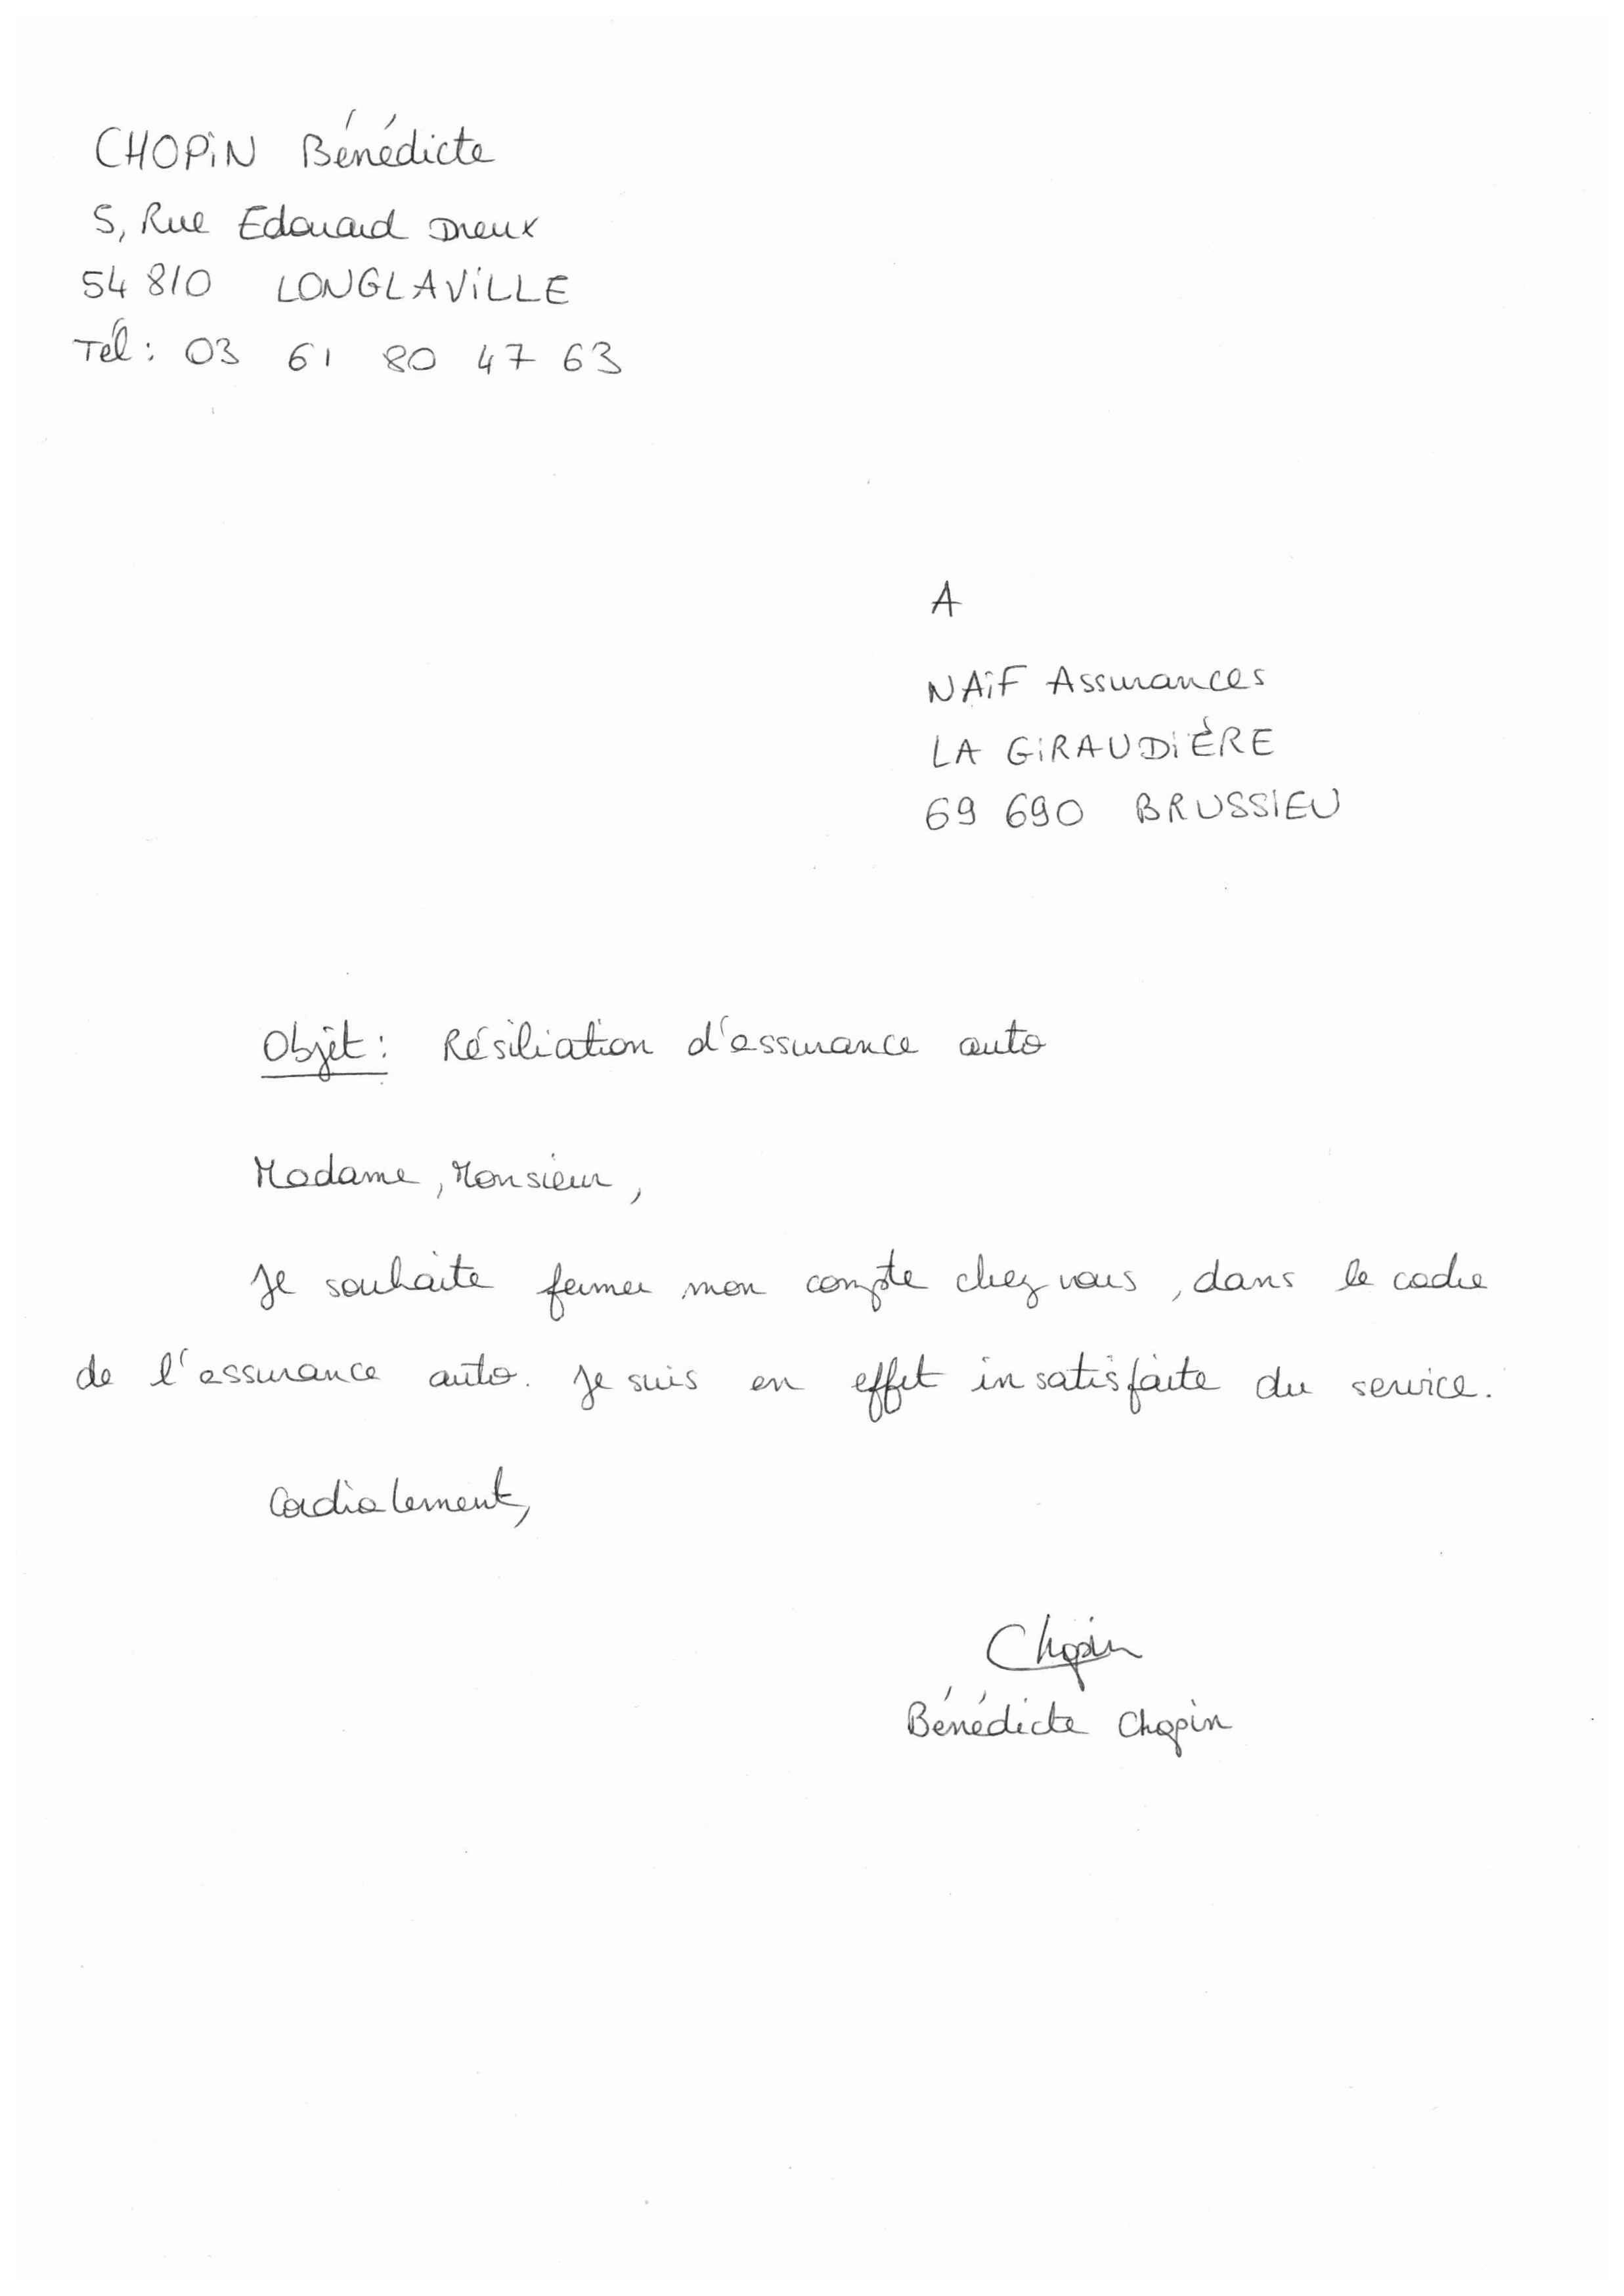 CHOPIN Bénédicte
5, Rue Edouard Dreux
54 810 LONGLAVILLE
Tél : 03 61 80 47 63
A
NAIF Assurances
LA GIRAUDIÈRE
69 690 BRUSSIEU
Objet : Résiliation d'assurance auto
Madame, Monsieur,
Je souhaite fermer mon compte chez vous, dans le cadre
de l'assurance auto. Je suis en effet insatisfaite du service.
Cordialement,
Chopin
Bénédicte Chopin